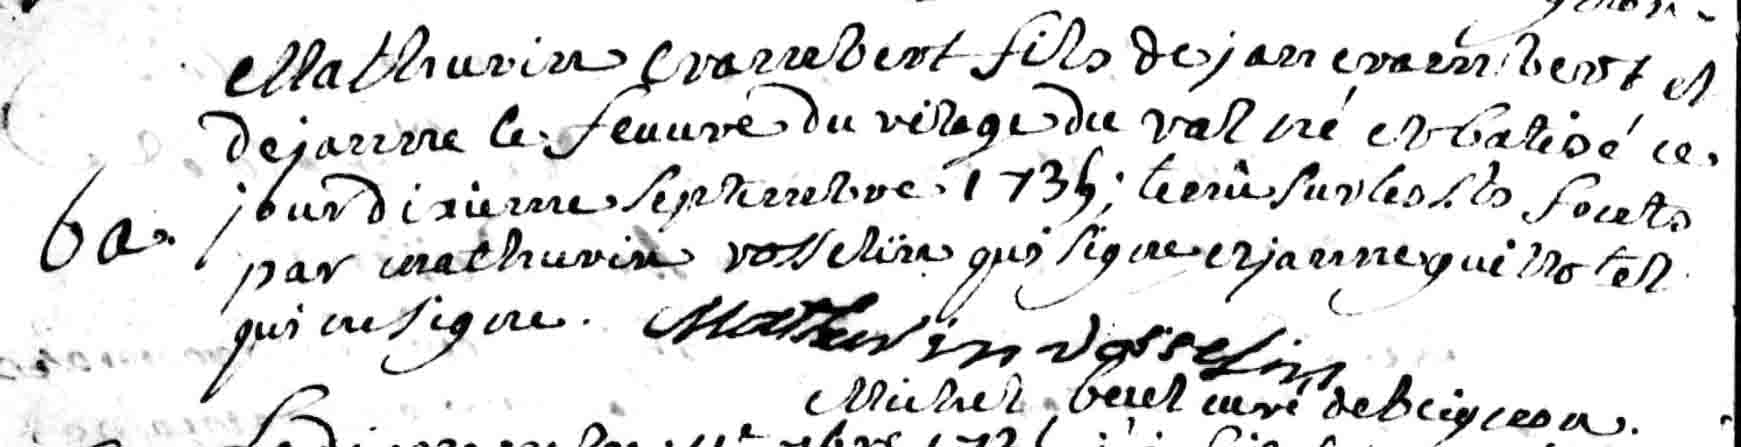 Mathurin evanbert fils de jan evanbert et
de janne le feuvre du vilage du val né et batisé ce
jour dixieme septembre 1735; tenu sur les sts fonts
ba. par mathurin vosselin qui signe et janne guillotel
qui ne signe. Mathurin Vosselin
Michel curé de beignon.